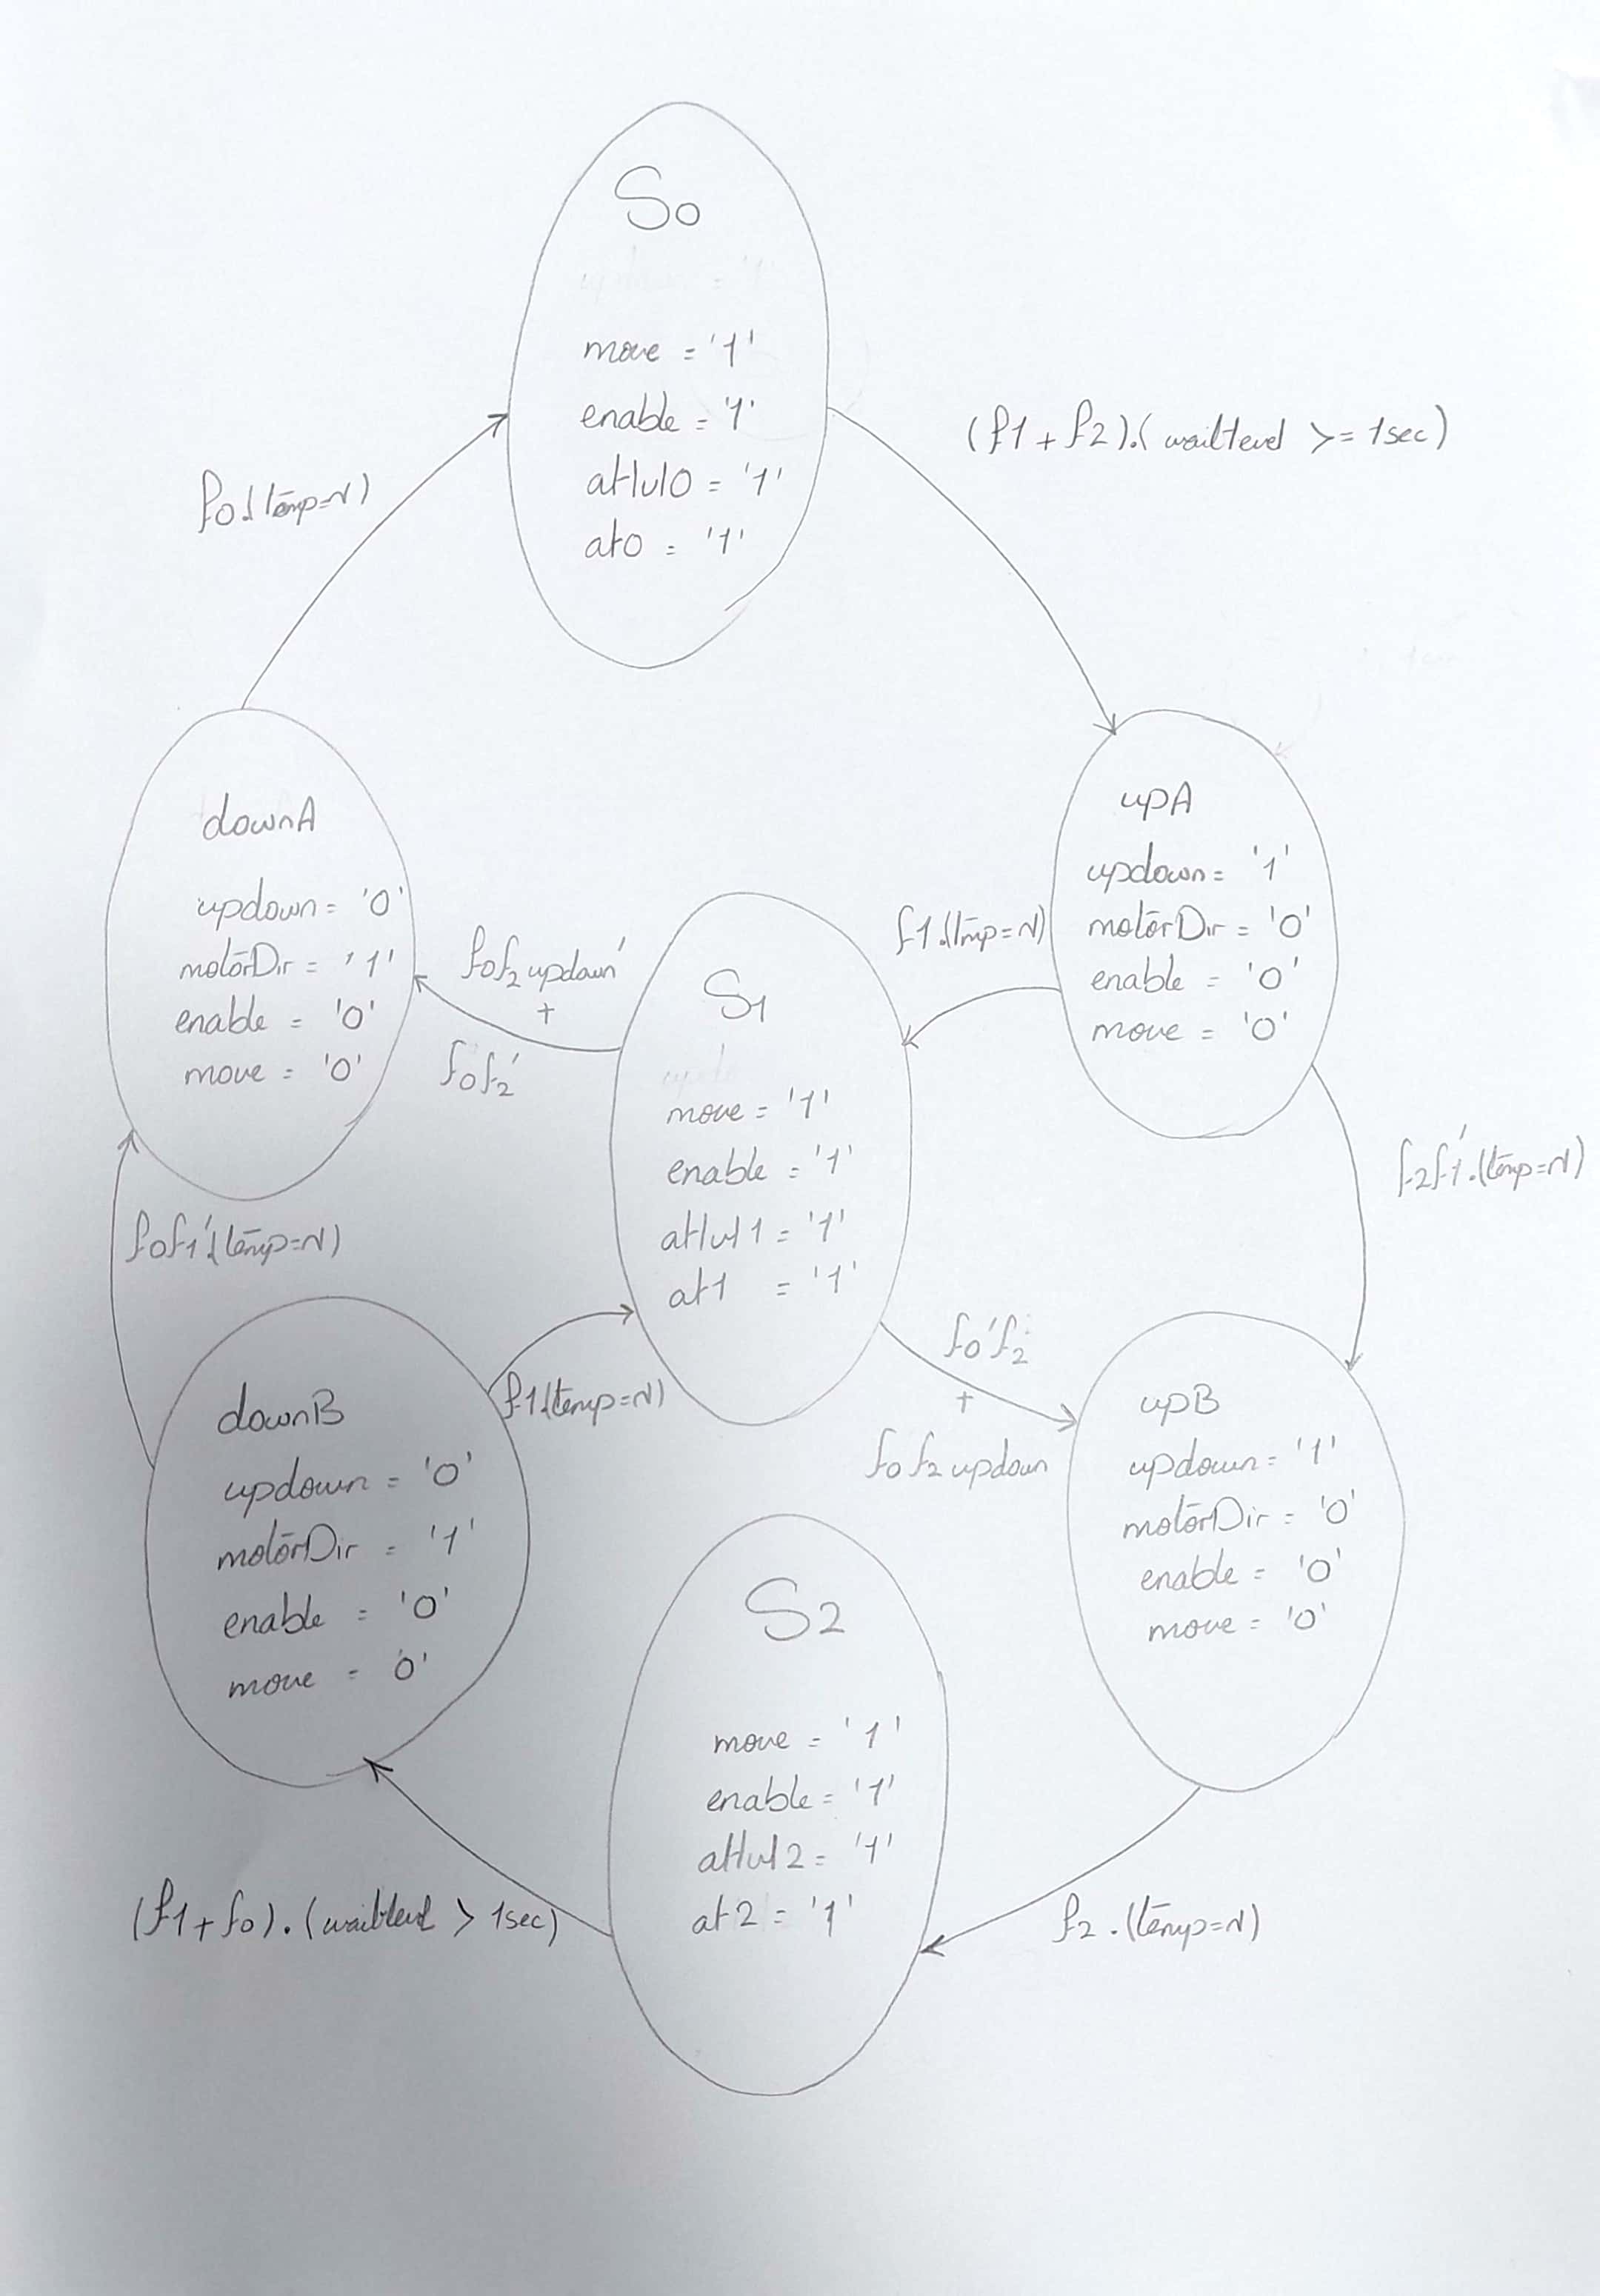 S0
move = '1'
enable = '1'
atlvl0 = '1'
at0 = '1'
f0.(temp=N)
(f1 + f2).( >= 1sec)
downA
updown = '0'
motorDir = '1'
enable = '0'
move = '0'
upA
updown = '1'
motorDir = '0'
enable = '0'
move = '0'
f0f2 updown'
+
f0f2'
f1.(tmp=N)
S1
move = '1'
enable = '1'
atlvl1 = '1'
at1 = '1'
f2f1'.(temp=N)
f0f1'.(temp=N)
f1.(temp=N)
f0'f2
+
f0f2 updown
downB
updown = '0'
motorDir = '1'
enable = '0'
move = 0'
upB
updown = '1'
motorDir = '0'
enable = '0'
move = '0'
S2
move = '1'
enable = '1'
atlvl2 = '1'
at2 = '1'
(f1 + f0).( > 1sec)
f2.(temp=N)